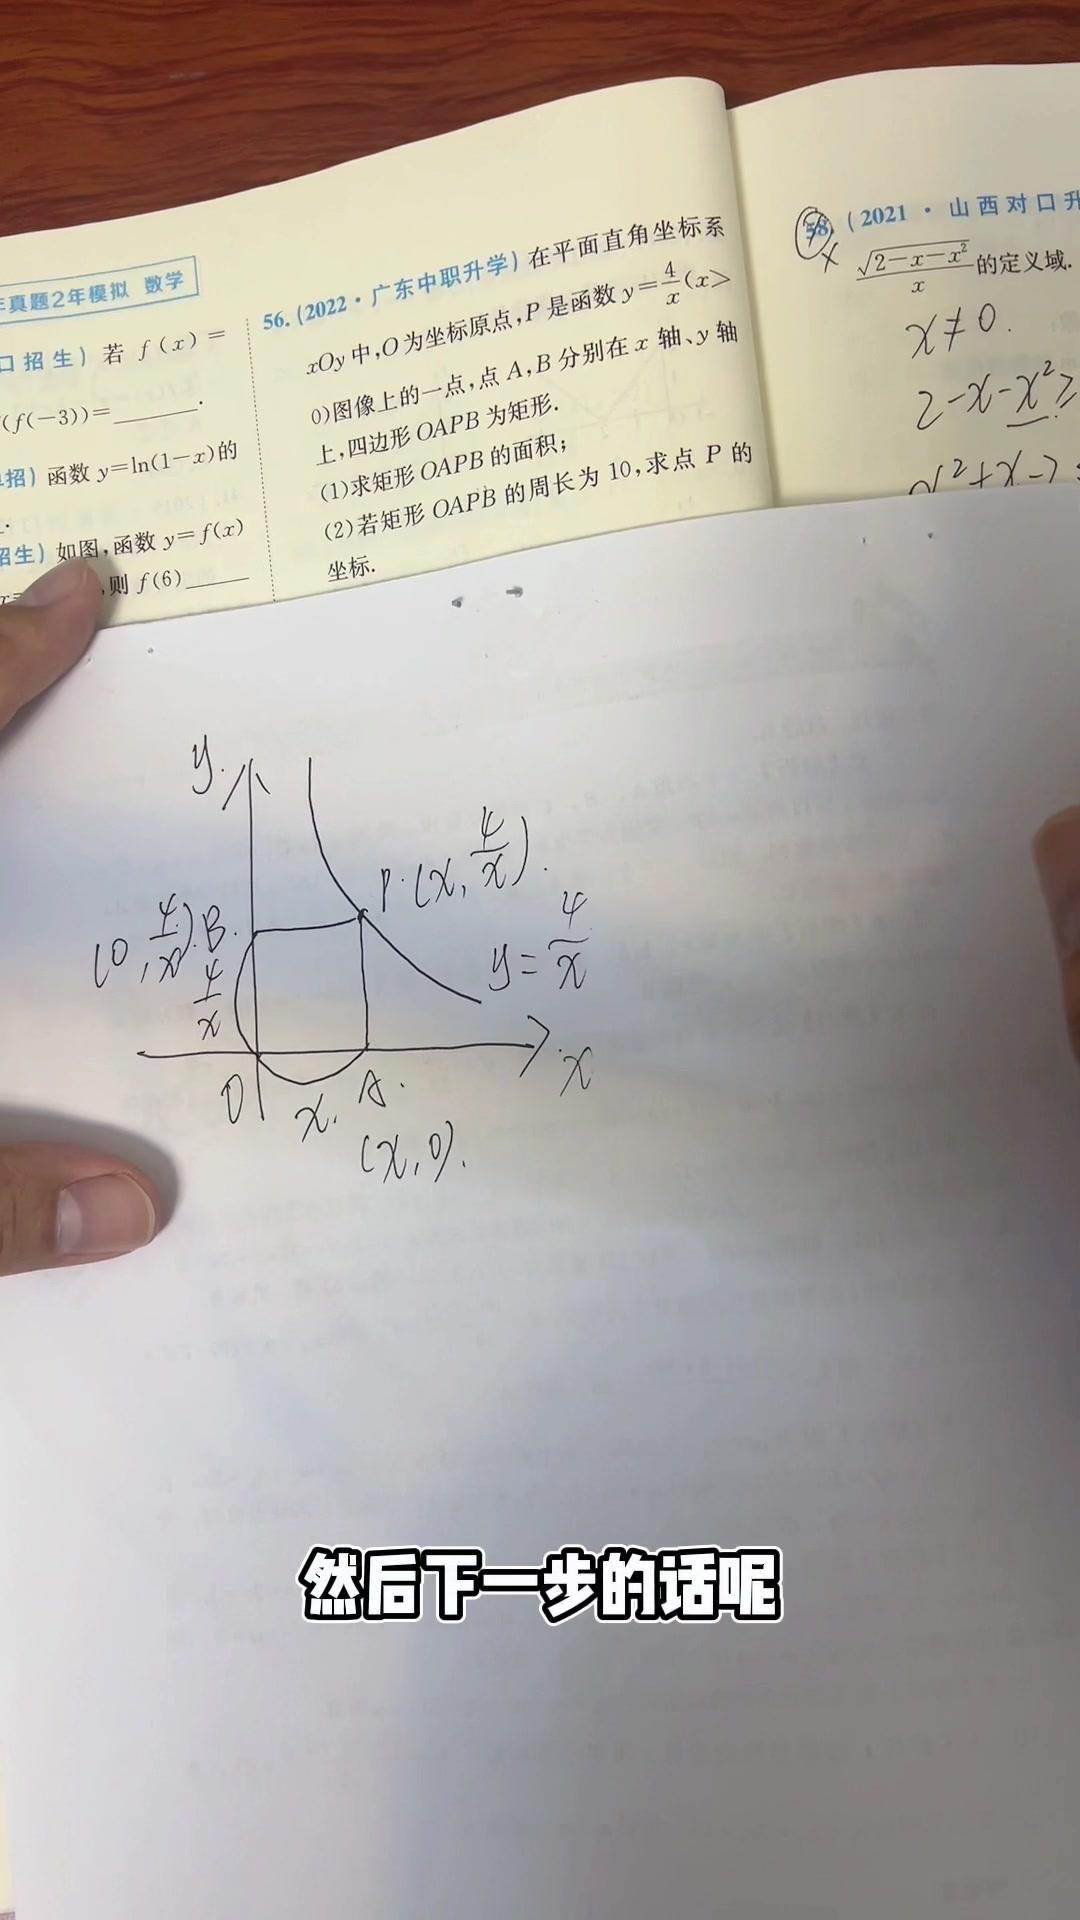 年真题2年模拟 数学
口招生) 若 f(x)=
f(f(-3))=______.
单招) 函数 y=ln(1-x)的
招生) 如图,函数 y=f(x)
,则 f(6)____
56.(2022·广东中职升学) 在平面直角坐标系
xOy 中,O 为坐标原点,P 是函数 y=4/x(x>
0)图像上的一点,点 A,B 分别在 x 轴、y 轴
上,四边形 OAPB 为矩形.
(1)求矩形 OAPB 的面积;
(2)若矩形 OAPB 的周长为 10,求点 P 的
坐标.
58.(2021·山西对口升
√(2-x-x²)/x 的定义域.
x≠0.
2-x-x²≥
x²+x-2
y
P.(x, 4/x).
(0, 4/x) B.
4/x
y=4/x
O x. A. x
(x,0).
然后下一步的话呢